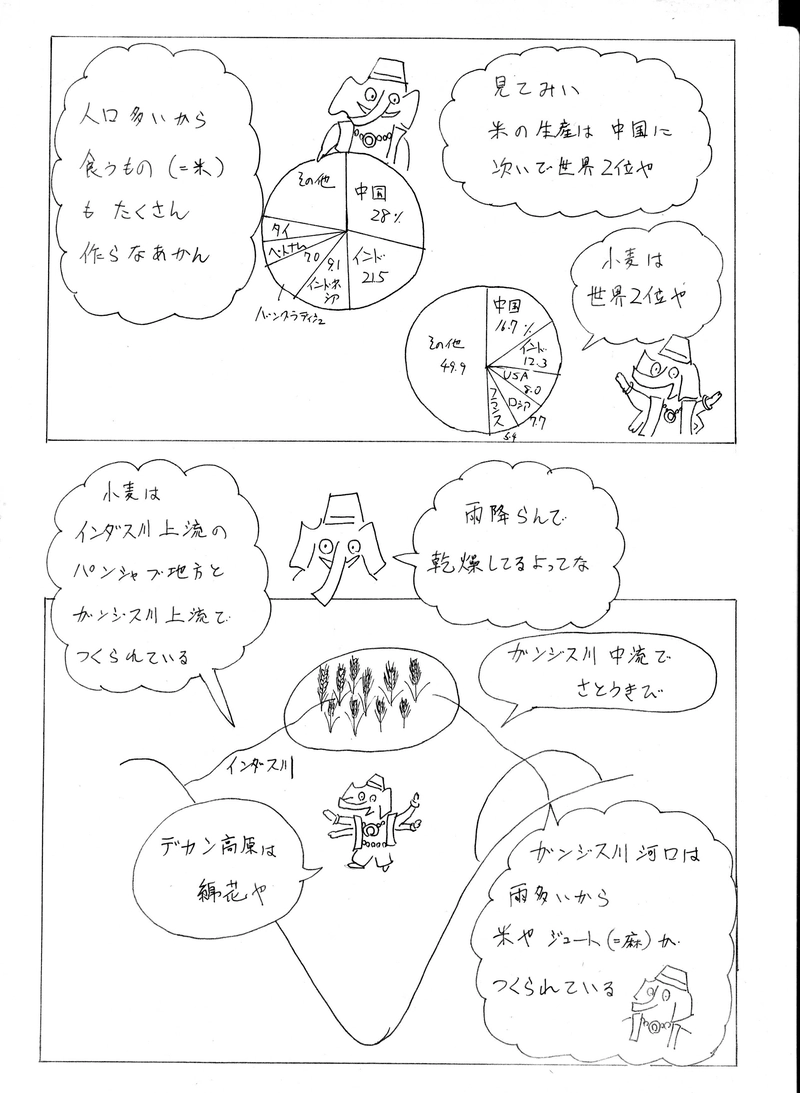 見てみい
米の生産は 中国に
次いで世界2位や
人口多いから
食うもの (=米)
も たくさん
作らなあかん
その他
中国
28%
インド
21.5
インドネシア
9.1
バングラディシュ
7.0
ベトナム
タイ
小麦は
世界2位や
中国
16.7%
インド
12.3
USA
8.0
ロシア
7.7
フランス
5.4
その他
49.9
小麦は
インダス川上流の
パンジャブ地方と
ガンジス川上流で
つくられている
雨降らんで
乾燥してるよってな
ガンジス川中流で
さとうきび
インダス川
デカン高原は
綿花や
ガンジス川河口は
雨多いから
米や ジュート(=麻)が
つくられている